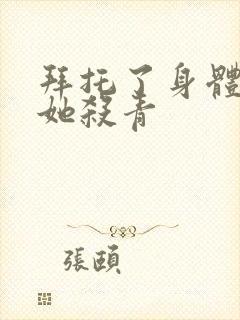 拜托了身體
她殺青
張頤